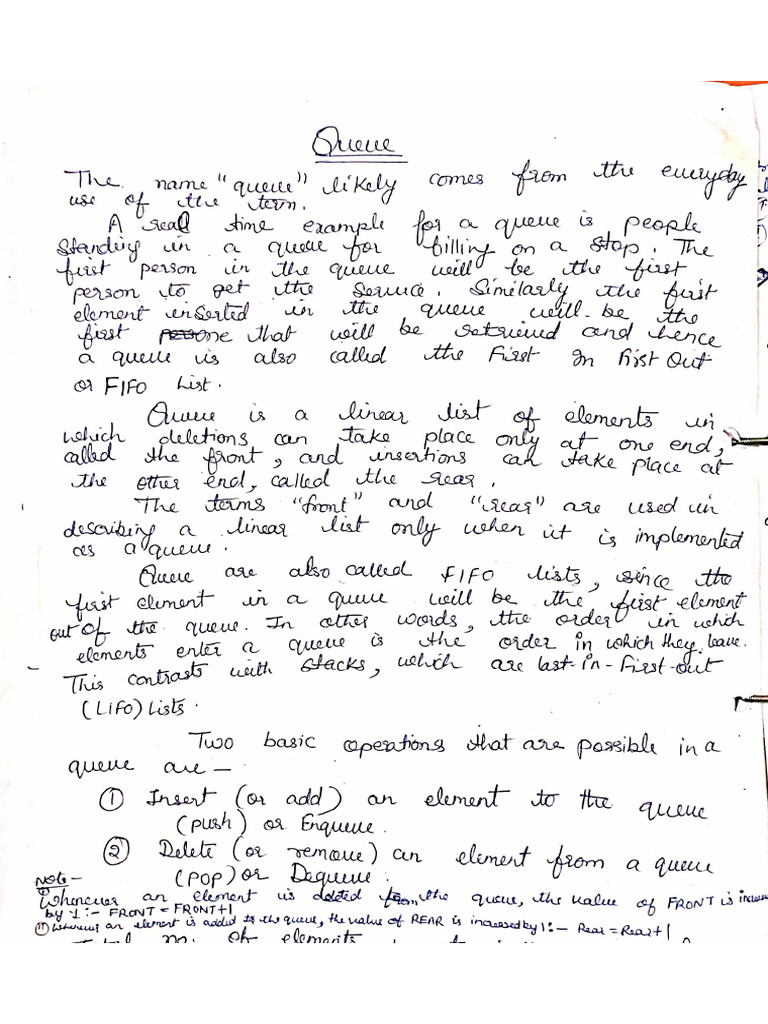 Queue
The name "queue" likely comes from the everyday
use of the term.
A real time example for a queue is people
standing in a queue for billing on a stop. The
first person in the queue will be the first
person to get the service. Similarly the first
element inserted in the queue will be the
first one that will be retrieved and hence
a queue is also called the First In First Out
or FIFO List.
Queue is a linear list of elements in
which deletions can take place only at one end,
called the front, and insertions can take place at
the other end, called the rear.
The terms "front" and "rear" are used in
describing a linear list only when it is implemented
as a queue.
Queue are also called FIFO lists, since the
first element in a queue will be the first element
out of the queue. In other words, the order in which
elements enter a queue is the order in which they leave.
This contrasts with stacks, which are last-in-First-out
(LIFO) Lists.
Two basic operations that are possible in a
queue are —
① Insert (or add) an element to the queue
(push) or Enqueue.
② Delete (or remove) an element from a queue
(POP) or Dequeue.
Note:-
① Whenever an element is deleted from the queue, the value of FRONT is
by 1:- FRONT = FRONT+1
② Whenever an element is added to the queue, the value of REAR is increased by 1:- Rear = Rear+1
no. of elements